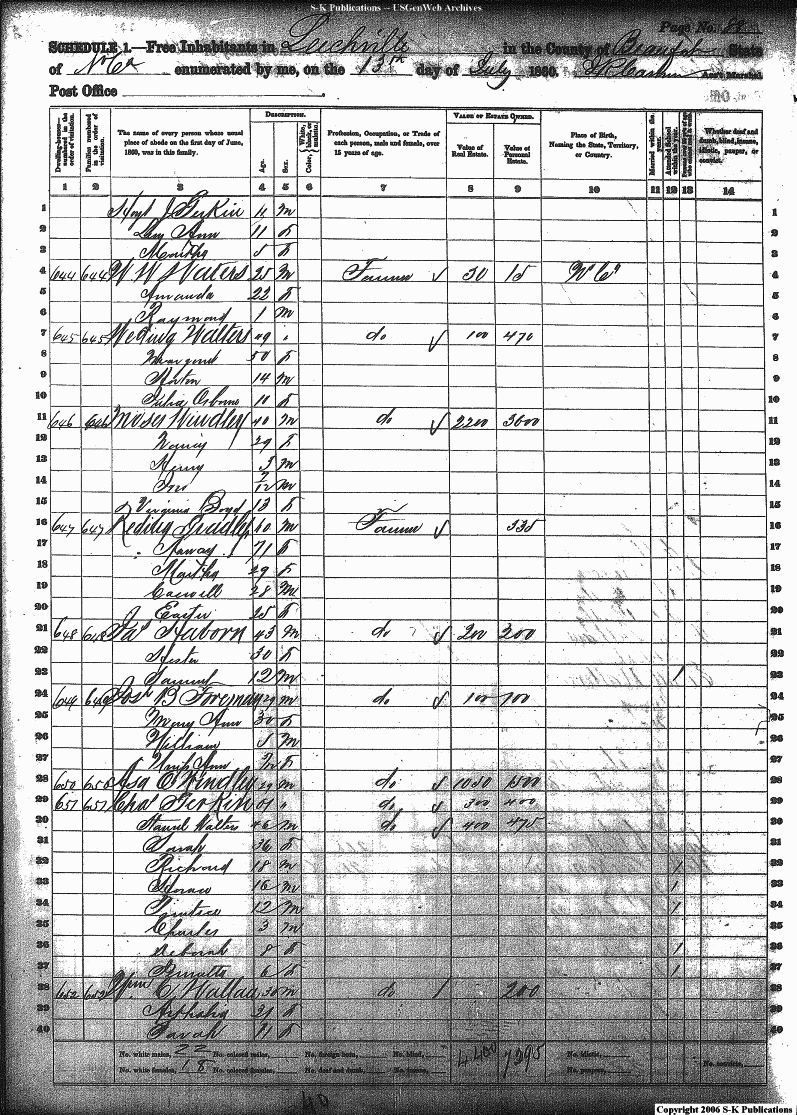 S-K Publications -- USGenWeb Archives
Page No. 88
SCHEDULE 1.—Free Inhabitants in Leechville in the County of Beaufort State
of No Ca enumerated by me, on the 13th day of July 1860. Ass't Marshal
Post Office
DESCRIPTION. VALUE OF ESTATE OWNED.
Dwelling-houses— numbered in the order of visitation. Families numbered in the order of visitation. The name of every person whose usual place of abode on the first day of June, 1860, was in this family. Age. Sex. Color, White, black, or mulatto. Profession, Occupation, or Trade of each person, male and female, over 15 years of age. Value of Real Estate. Value of Personal Estate. Place of Birth, Naming the State, Territory, or Country. Married within the year. Attended School within the year. Whether deaf and dumb, blind, insane, idiotic, pauper, or convict.
1 2 3 4 5 6 7 8 9 10 11 12 13 14
1 Hoyt J Perkin 11 m 1
2 Ann 11 f 2
3 Martha 5 f 3
4 644 644 W W Waters 25 M Farmer 50 15 No Ca 4
5 Amanda 22 f 5
6 Raymond 1 M 6
7 645 645 Reding Walters 49 " do 100 470 7
8 Margaret 50 f 8
9 14 m 9
10 Julia Osborne 10 f 10
11 646 646 Moses Windley 40 m do 2200 3600 11
12 Nancy 29 f 12
13 Henry 3 m 13
14 /12 m 14
15 Virginia Boyd 13 f 15
16 647 647 Reding 60 m Farmer 335 16
17 71 f 17
18 Martha 29 f 18
19 Caswell 28 m 19
20 Easter 25 f 20
21 648 648 Jas 43 M do 200 200 21
22 Hester 30 f 22
23 Samuel 12 m 1 23
24 649 649 Josh B Foreman 29 m do 100 100 24
25 Mary Ann 30 f 25
26 William 5 m 26
27 Ann f 27
28 650 650 Asa O Windley 29 m do 1050 1500 28
29 651 651 Chas Perkin " do 300 400 29
30 Walters 46 m do 400 475 30
31 Sarah 36 f 31
32 Richard 18 m 1 32
33 Horace 16 m 1 33
34 Prentice 12 M 1 34
35 Charles 3 m 35
36 Deborah 8 f 1 36
37 6 f 1 37
38 652 652 Wm C Wallace 30 m do 200 38
39 31 f 39
40 Sarah 11 f 40
No. white males, 22 No. colored males, No. foreign born, No. blind, 4400 7395 No. idiotic,
No. white females, 18 No. colored females, No. deaf and dumb, No. insane, No. paupers, No. convicts,
40
Copyright 2006 S-K Publications